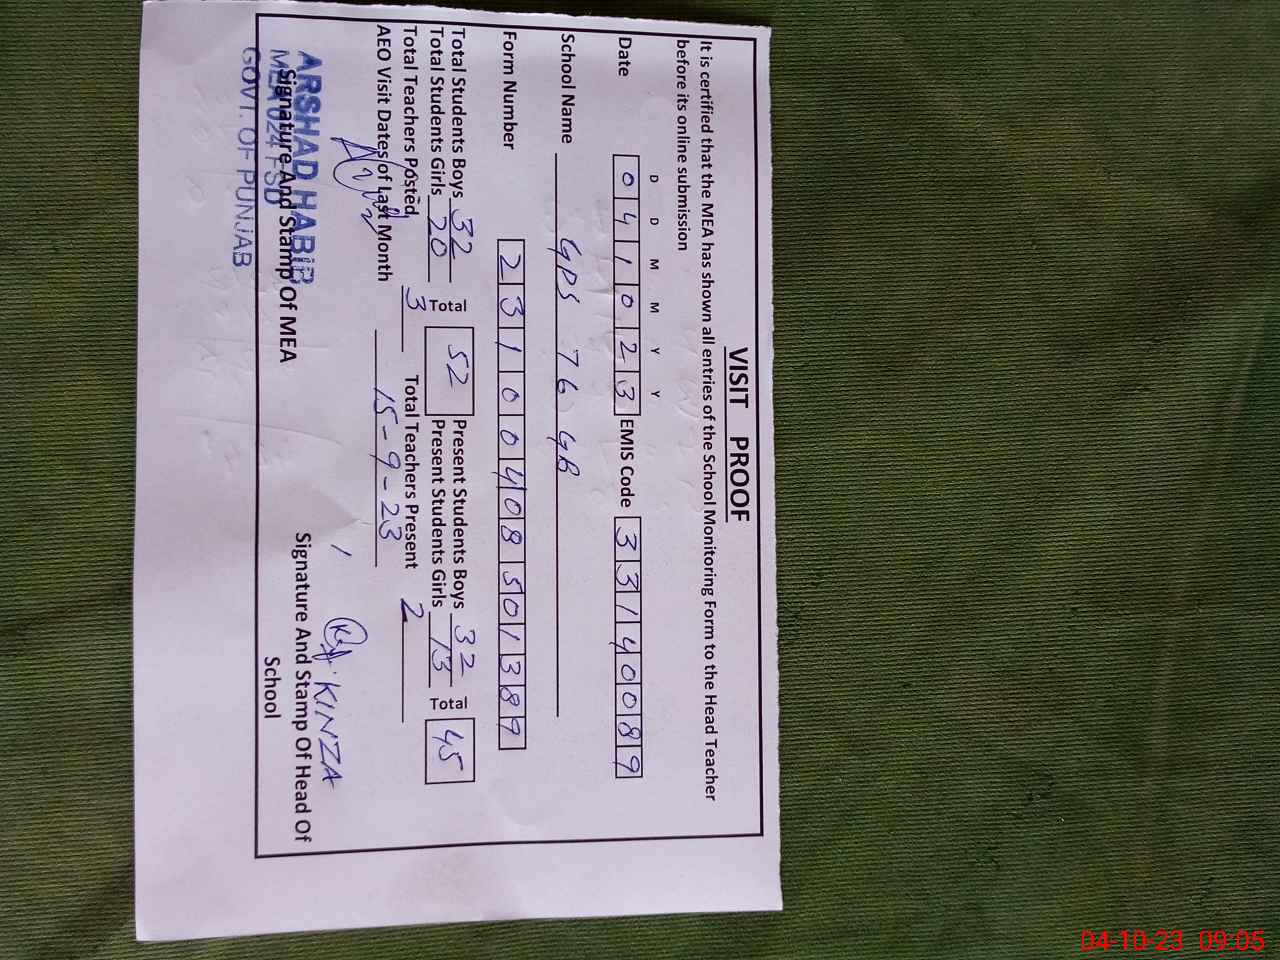 VISIT PROOF
It is certified that the MEA has shown all entries of the School Monitoring Form to the Head Teacher
before its online submission
D D M M Y Y
Date 0 4 1 0 2 3 EMIS Code 3 3 1 4 0 0 8 9
School Name GPS 76 GB
Form Number 2 3 1 0 0 4 0 8 5 0 1 3 8 9
Total Students Boys 32 Total 52 Present Students Boys 32 Total 45
Total Students Girls 20 Present Students Girls 13
Total Teachers Posted 3 Total Teachers Present 2
AEO Visit Dates of Last Month 15-9-23
KINZA
ARSHAD HABIB
MEA 024 FSD
GOVT. OF PUNJAB
Signature And Stamp Of MEA
Signature And Stamp Of Head Of
School
04-10-23 09:05